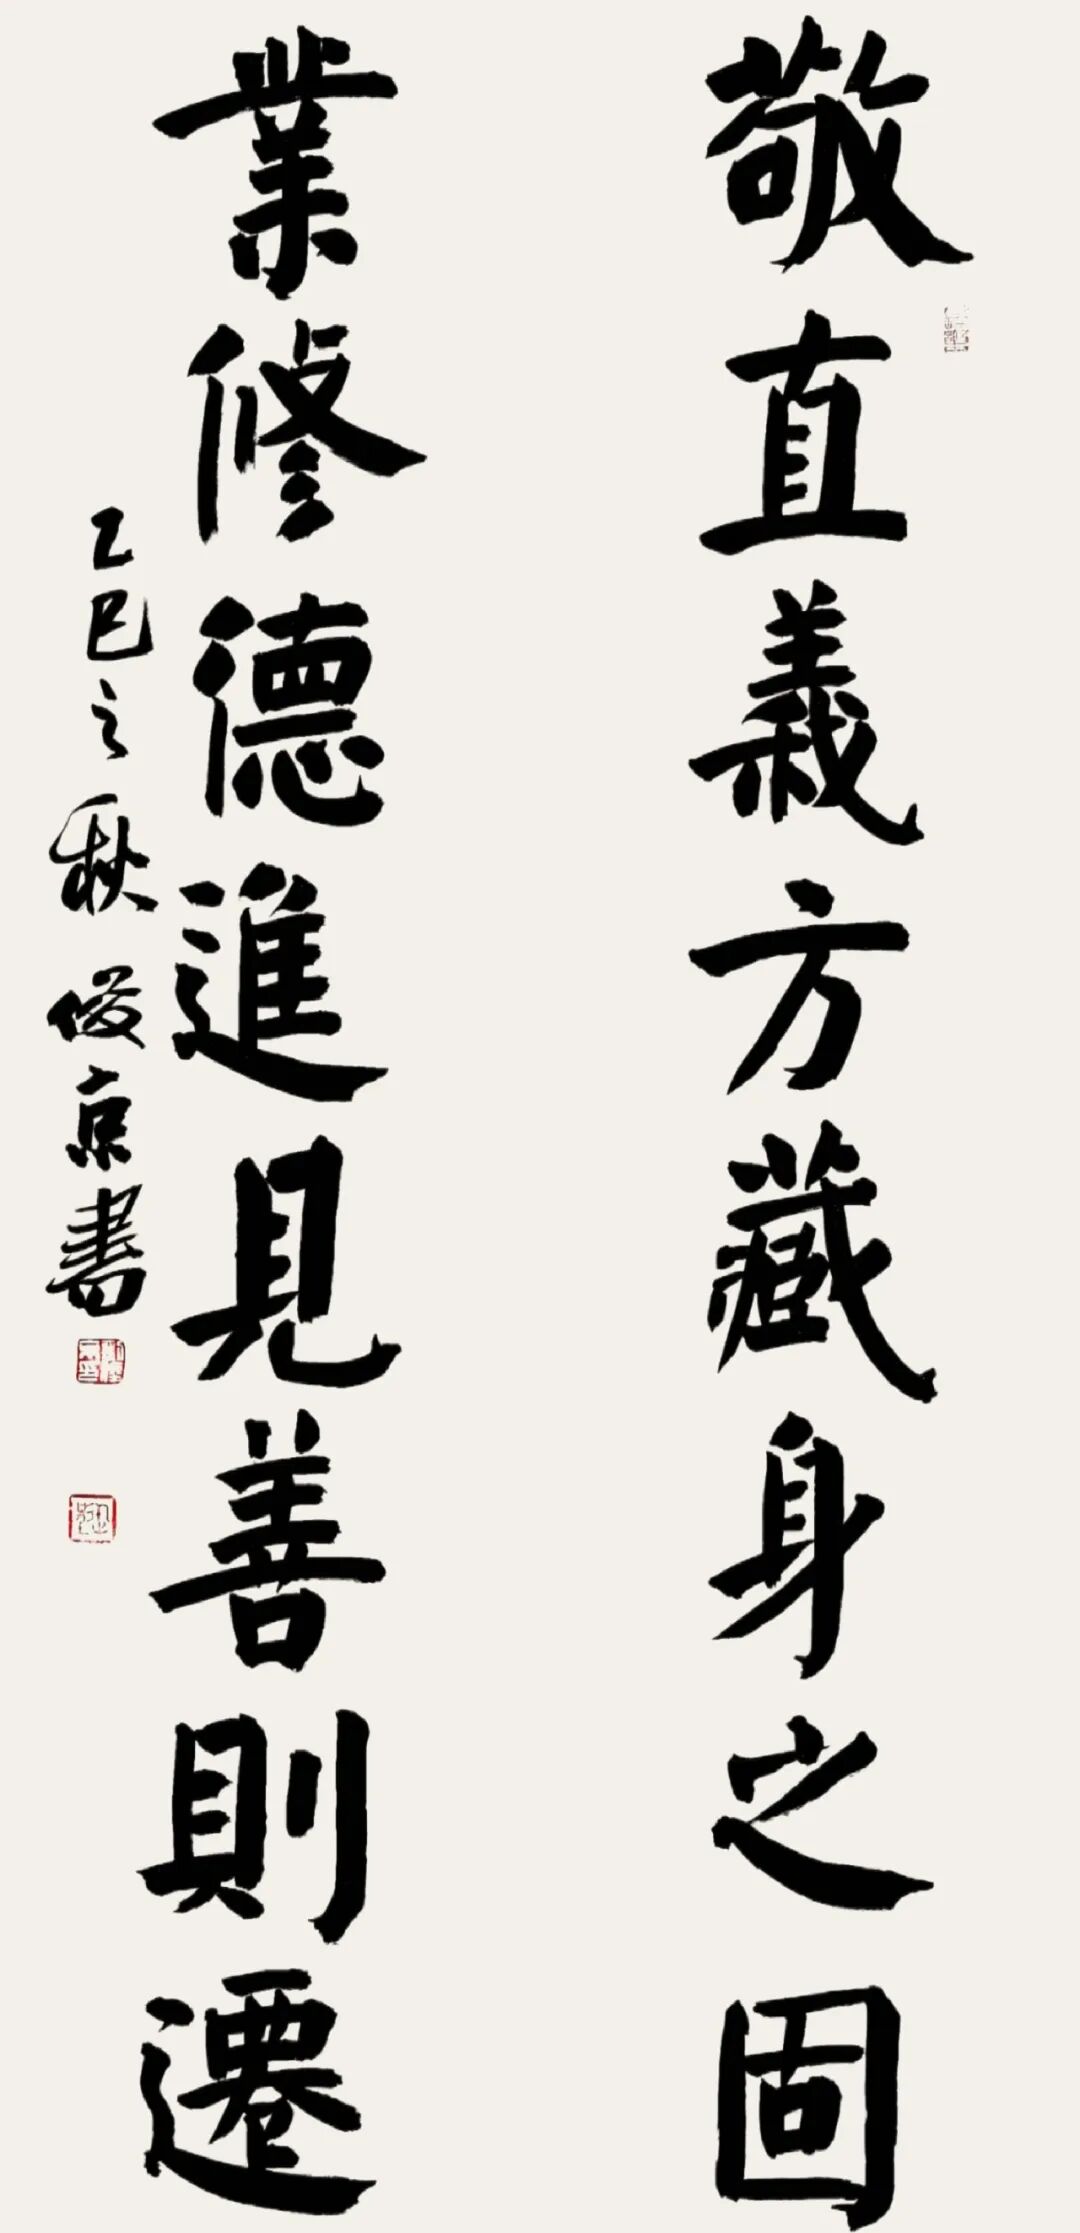 敬直義方藏身之固
業修德進見善則遷
乙巳之秋俊京書